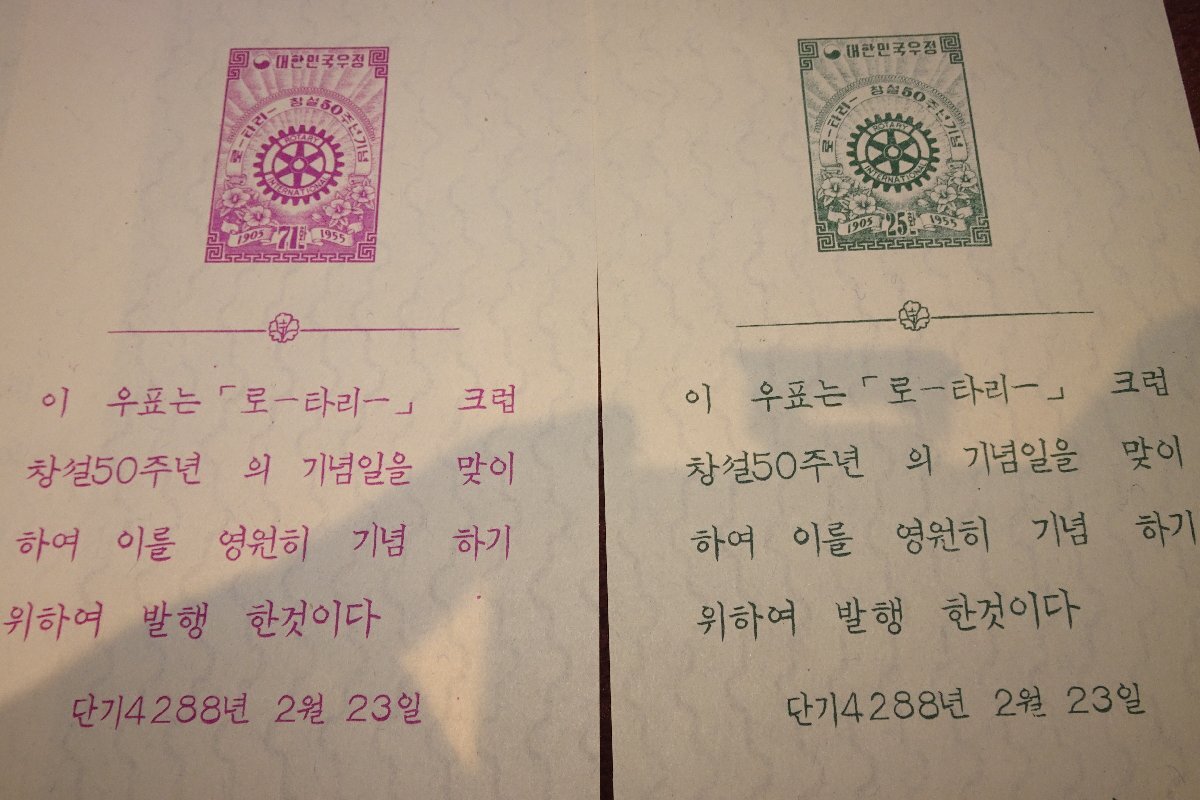 대한민국우정
로-타리- 창설50주년기념
ROTARY
INTERNATIONAL
1905 71환 1955
이 우표는「로-타리-」 크럽
창설50주년 의 기념일을 맞이
하여 이를 영원히 기념 하기
위하여 발행 한것이다
단기4288년 2월 23일
대한민국우정
로-타리- 창설50주년기념
ROTARY
INTERNATIONAL
1905 25환 1955
이 우표는「로-타리-」 크럽
창설50주년 의 기념일을 맞이
하여 이를 영원히 기념 하기
위하여 발행 한것이다
단기4288년 2월 23일